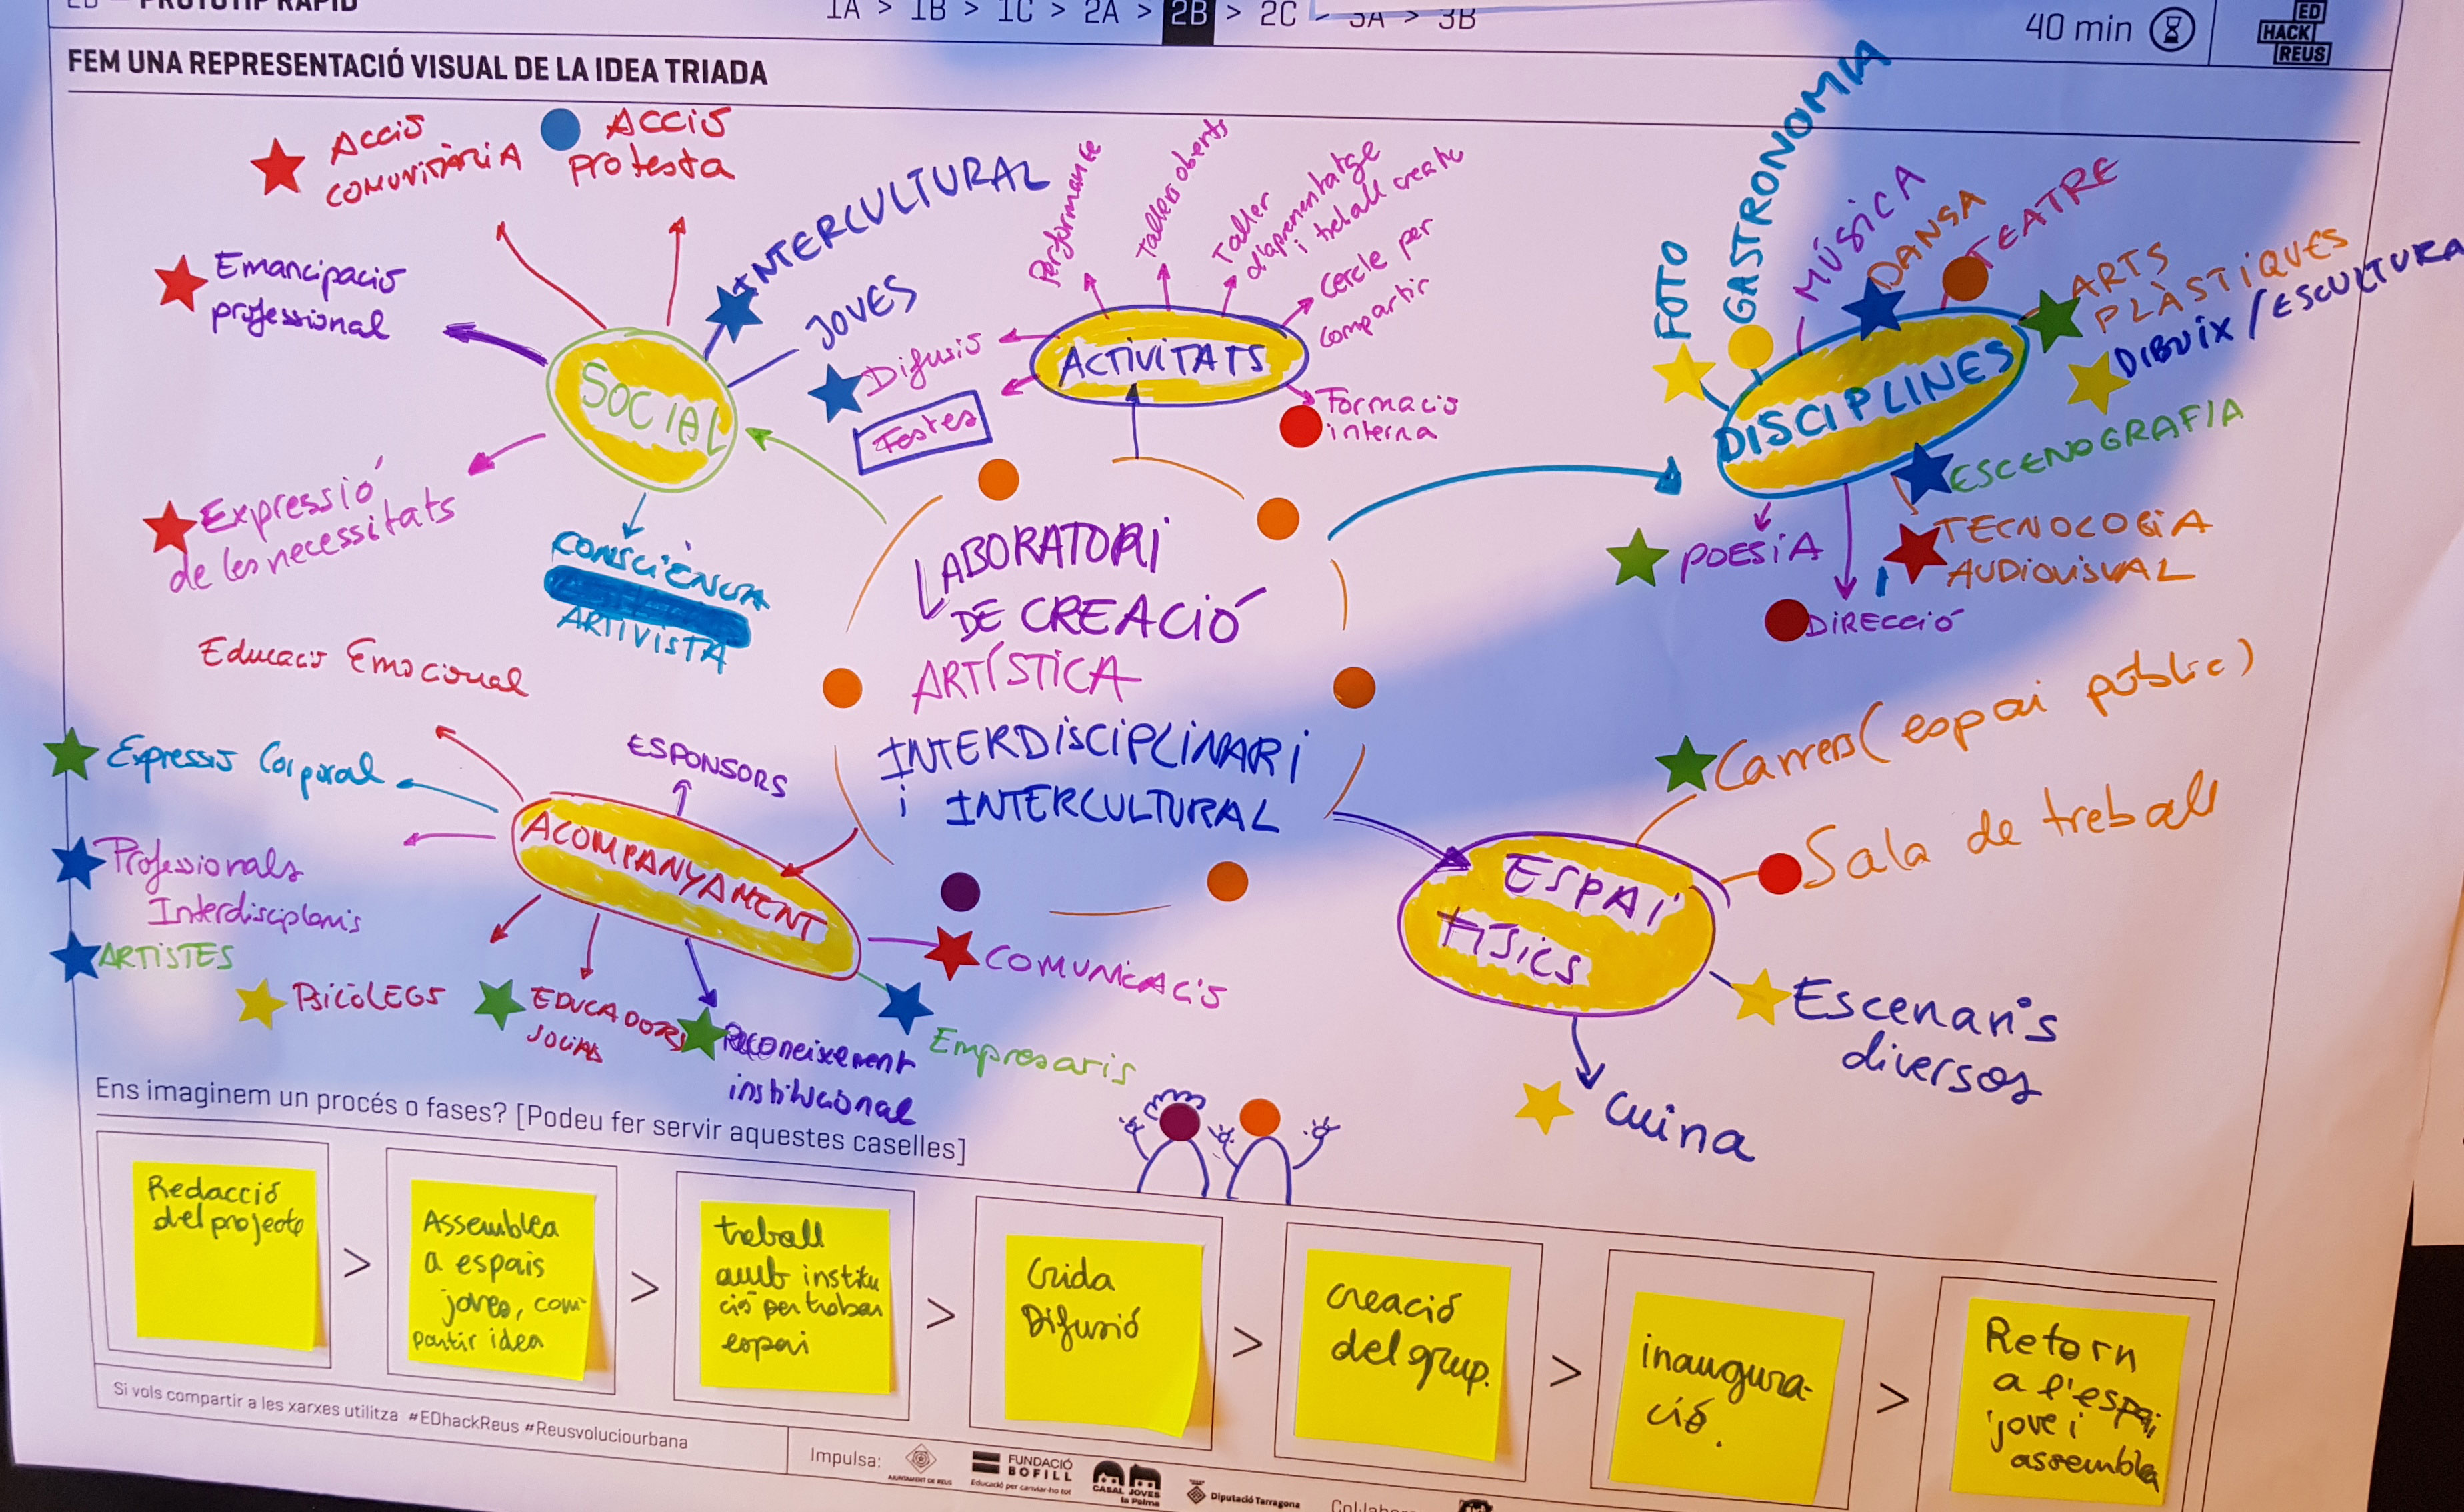 PROTOTIP RÀPID
1A > 1B > 1C > 2A > 2B > 2C - 3A > 3B
40 min
ED
HACK
REUS
FEM UNA REPRESENTACIÓ VISUAL DE LA IDEA TRIADA
Acció
comunitària
Acció
protesta
Emancipació
professional
INTERCULTURAL
JOVES
SOCIAL
Expressió
de les necessitats
CONSCIÈNCIA
ARTIVISTA
Performance
Tallers oberts
Taller
d'aprenentatge
i treball creatiu
Cercle per
compartir
Difusió
Festes
ACTIVITATS
Formació
interna
FOTO
GASTRONOMIA
MÚSICA
DANSA
TEATRE
ARTS
PLÀSTIQUES
DIBUIX / ESCULTURA
DISCIPLINES
ESCENOGRAFIA
POESIA
TECNOLOGIA
AUDIOVISUAL
DIRECCIÓ
LABORATORI
DE CREACIÓ
ARTÍSTICA
INTERDISCIPLINARI
i INTERCULTURAL
Educació Emocional
Expressió Corporal
ESPONSORS
Professionals
Interdisciplinis
ARTISTES
ACOMPANYAMENT
PSICÒLEGS
EDUCADORS
SOCIALS
Reconeixement
institucional
COMUNICACIÓ
Empresaris
ESPAI
FÍSICS
Carrers (espai públic)
Sala de treball
Escenaris
diversos
cuina
Ens imaginem un procés o fases? [Podeu fer servir aquestes caselles]
Redacció
del projecte
>
Assemblea
a espais
joves, com-
partir idea
>
treball
amb institu
ció per trobar
espai
>
Crida
Difusió
>
creació
del grup.
>
inaugura-
ció.
>
Retorn
a l'espai
jove i
assemblea
Si vols compartir a les xarxes utilitza #EDhackReus #Reusvoluciourbana
Impulsa:
AJUNTAMENT DE REUS
FUNDACIÓ
BOFILL
Educació per canviar-ho tot
CASAL JOVES
la Palma
Diputació Tarragona